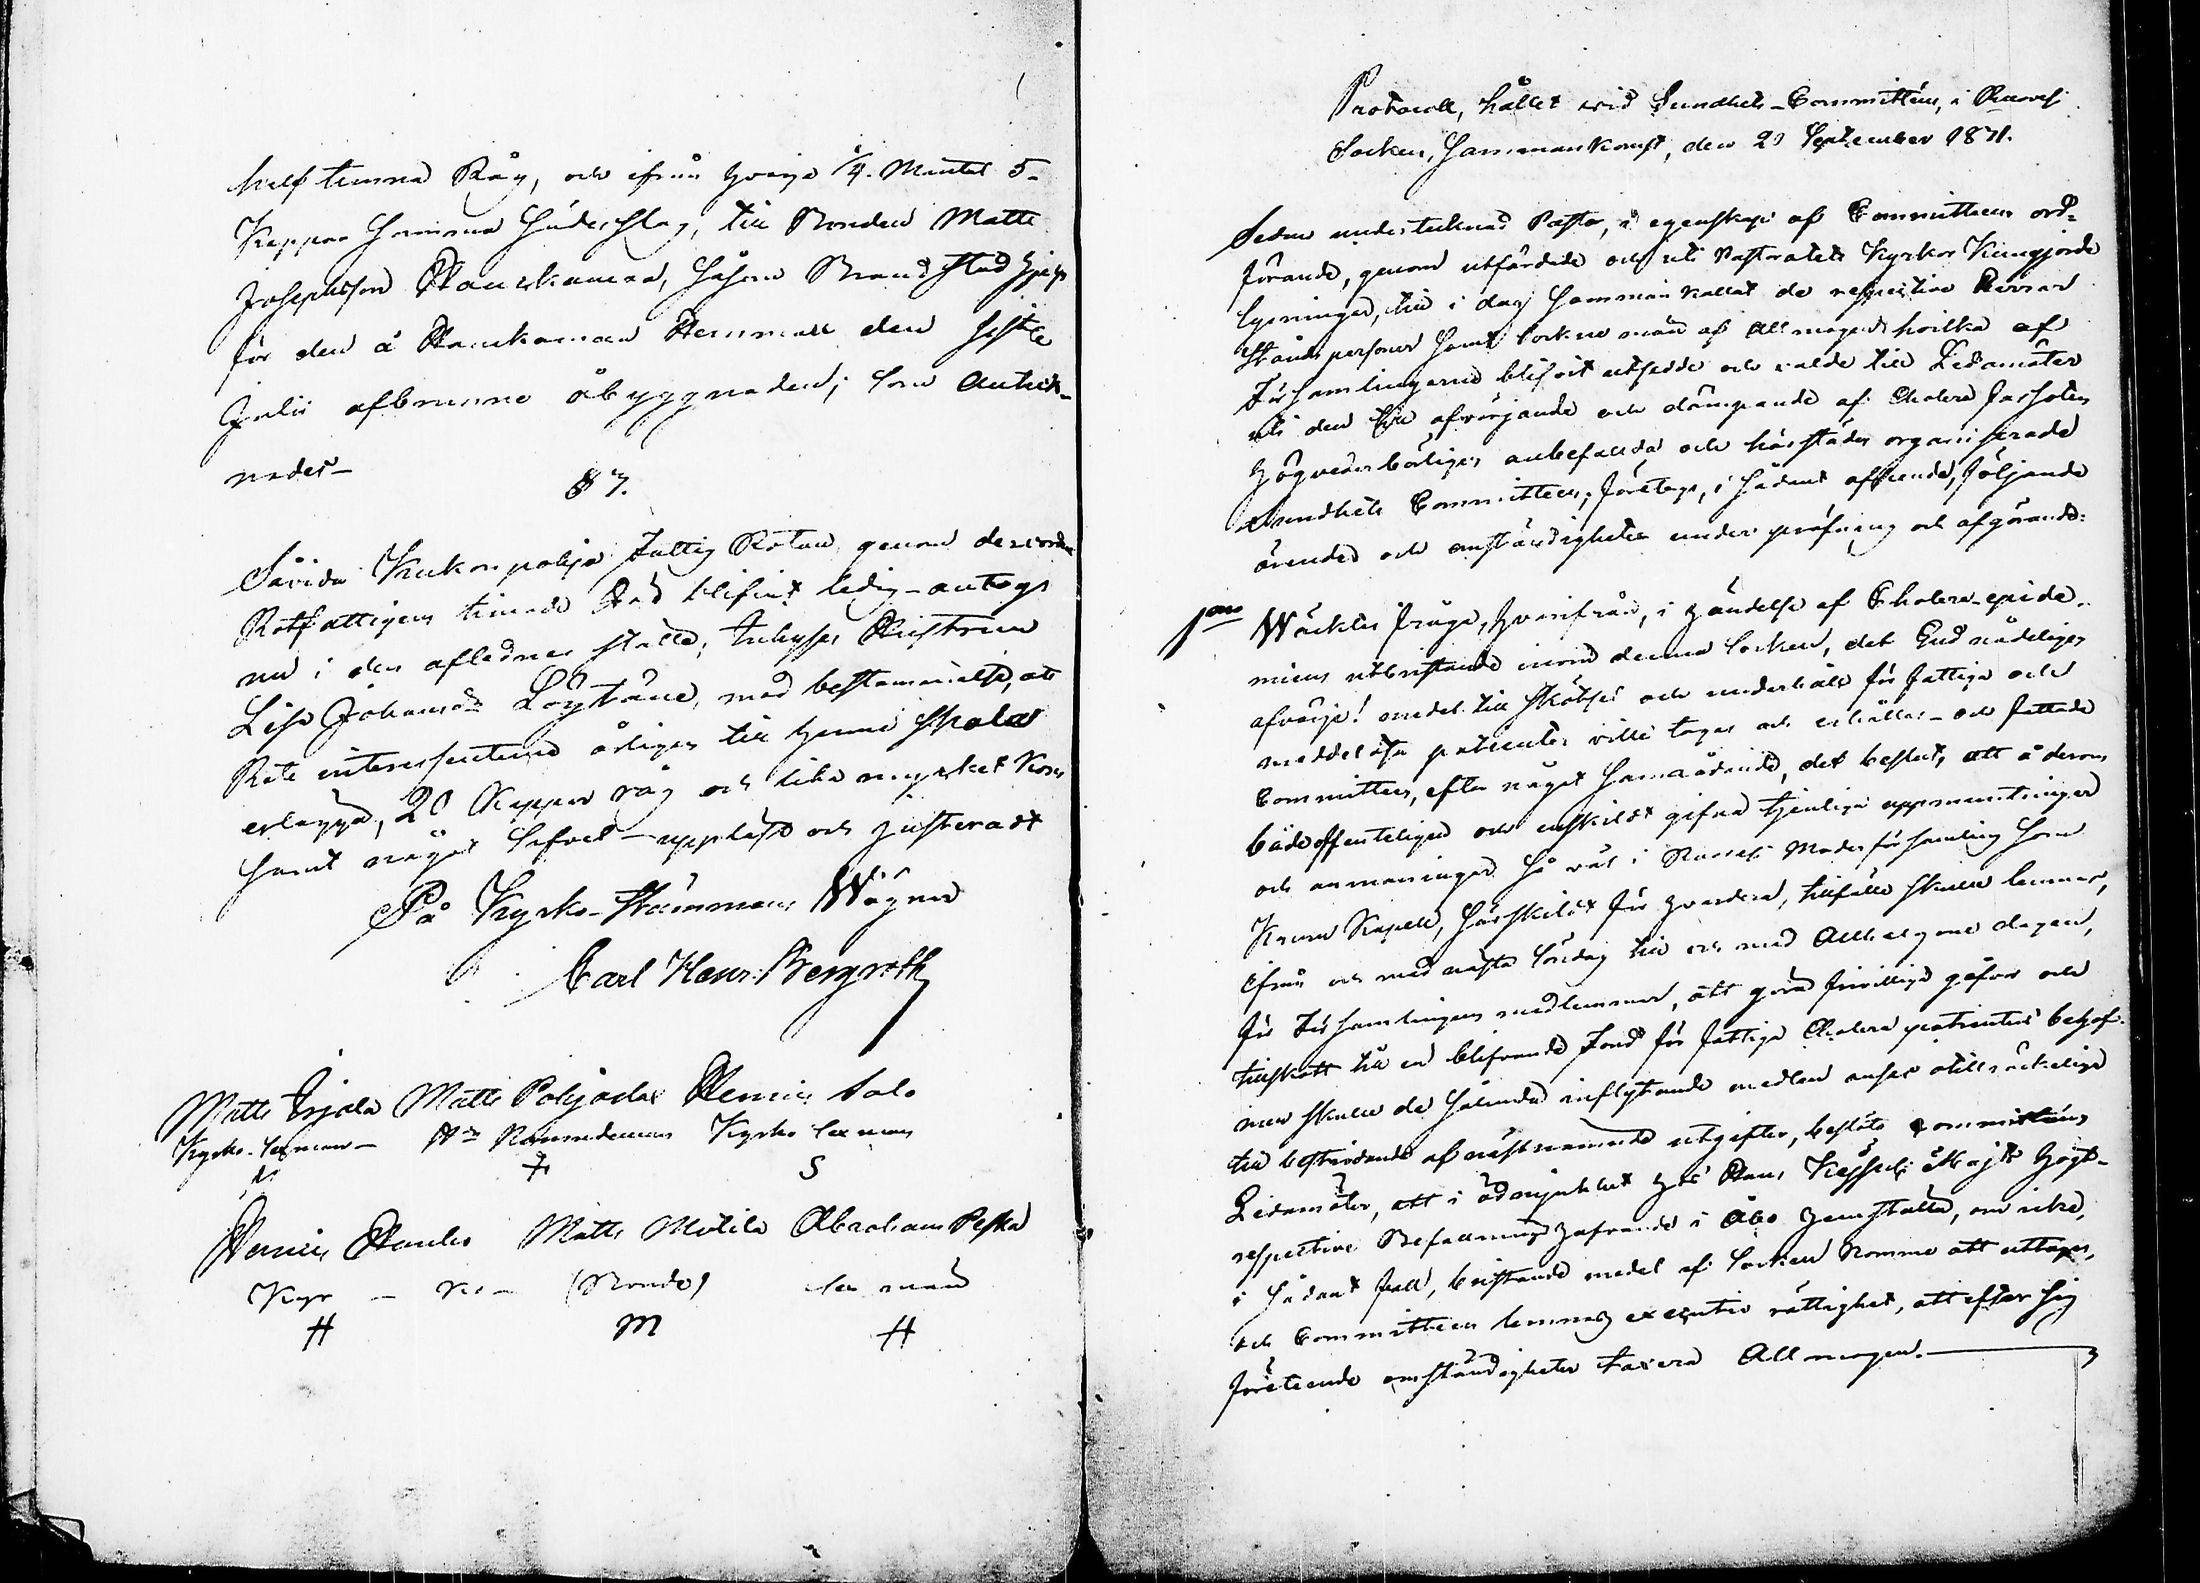 half tunna Råg, och ifrån hvarje 1/4. Mantal 5.
Kappar samma Sädesslag, till Bonden Matts
Josephsson Hauskamaa, såsom Brandstodshjelp
för den å Hauskamaa Hemman den siste
Julii afbrunne åbyggnaden; som anteck-
nades-
§ 7.
Såvida Kuckonpohja Fattig Rotan genom
Rotfattigens timade död blifvit ledig - antogs
nu i den aflednes ställe, Inhyses Enkan
Lisa Johansdr Löytäne, med bestämmelse, att
Rote interessenterna årligen till henne skola
erlägga, 20 Kappar råg och lika mycket Korn
samt något lefvel - uppläst och justeradt
På Kyrko-Stämmans Wägnar
Carl Henr. Bergroth
Matts Erjala Matts Pohjadas Henric Salo
Kyrko-Sexman- Nämndeman Kyrko Sexman
S
Henric Hanko Matts Mutila Abraham Peska
Kyr - ko - (Bonde) Sex män
H M H
Protocoll, hållet wid Sundhets-Committéen, i Ruovesi
Socken, Sammankomst, den 29 September 1831.
Sedan undertecknad Pastor, i egenskap af Committeens ord-
förande, genom utfärdade och uti Pastoratets Kyrkor Kungjorde
lysningar, till i dag sammankallat de respective Herrar
Ståndspersoner samt Sockne män af Allmogen hvilka af
Församlingarne blifvit utsedde och valde till Ledamöter
uti den till afvärjande och dämpande af Cholera farsoten
högvederbörligen anbefallda och härstädes organiserade
Sundhets Committeen; företogs, i sådant afseende, följande
ärenden och omständigheter under pröfning och afgörande:
1mo Wäcktes fråga, hvarifrån, i händelse af Cholera-epide-
miens utbristande inom denna Socken, det Gud nådeligen
afvärje! medel till skötsel och underhåll för fattige och
medellösa patienter ville tagas och erhållas - och fattade
Committeen, efter något samrådande, det beslut, att å derom
både offenteligen och enskildt gifna tjenliga uppmuntringar
och anmaningar så väl i Ruovesi Moderförsamling som
Kuru Kapell, särskildt för hvardera, tillfälle skulle lemnas,
ifrån och med nästa Söndag till och med Allhelgone dagen,
för Församlingens medlemmar, att göra frivilliga gåfvor och
tillskott till en blifvande Fond för fattige Cholera patienters behof.
men skulle de sålunda inflytande medlen anses otillräckelige
till bestridande af nästnämnde utgifter, beslöto Committéens
Ledamöter, att i ödmjukhet hos Hans Kejserl. Maj:ts Högt-
respective Befallningshafvande i Åbo hemställa, om icke,
i sådant fall, bristande medel af Socken komme att uttagas,
och Committeen lemnas executiv rättighet, att efter sig
företeende omständigheter taxera Allmogen.